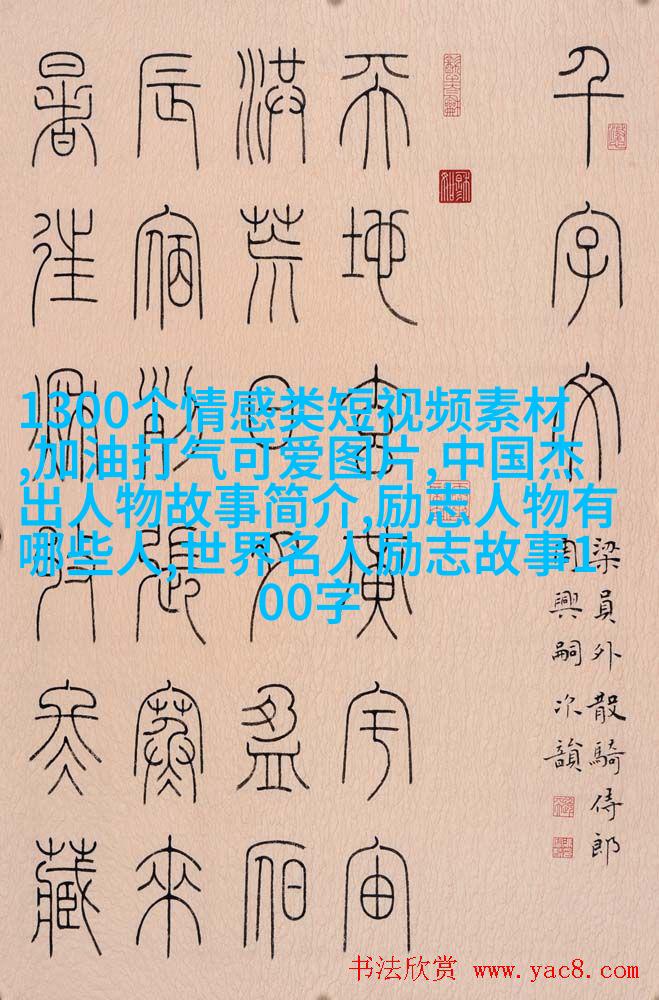 千字文
梁員外散騎侍郎
周興嗣次韻
天地玄黃宇宙
洪荒日月盈昃
辰宿列張寒來
暑往秋收冬藏
1300个情感类短视频素材
,加油打气可爱图片,中国杰
出人物故事简介,励志人物有
哪些人,世界名人励志故事1
00字
书法欣赏 www.yac8.com